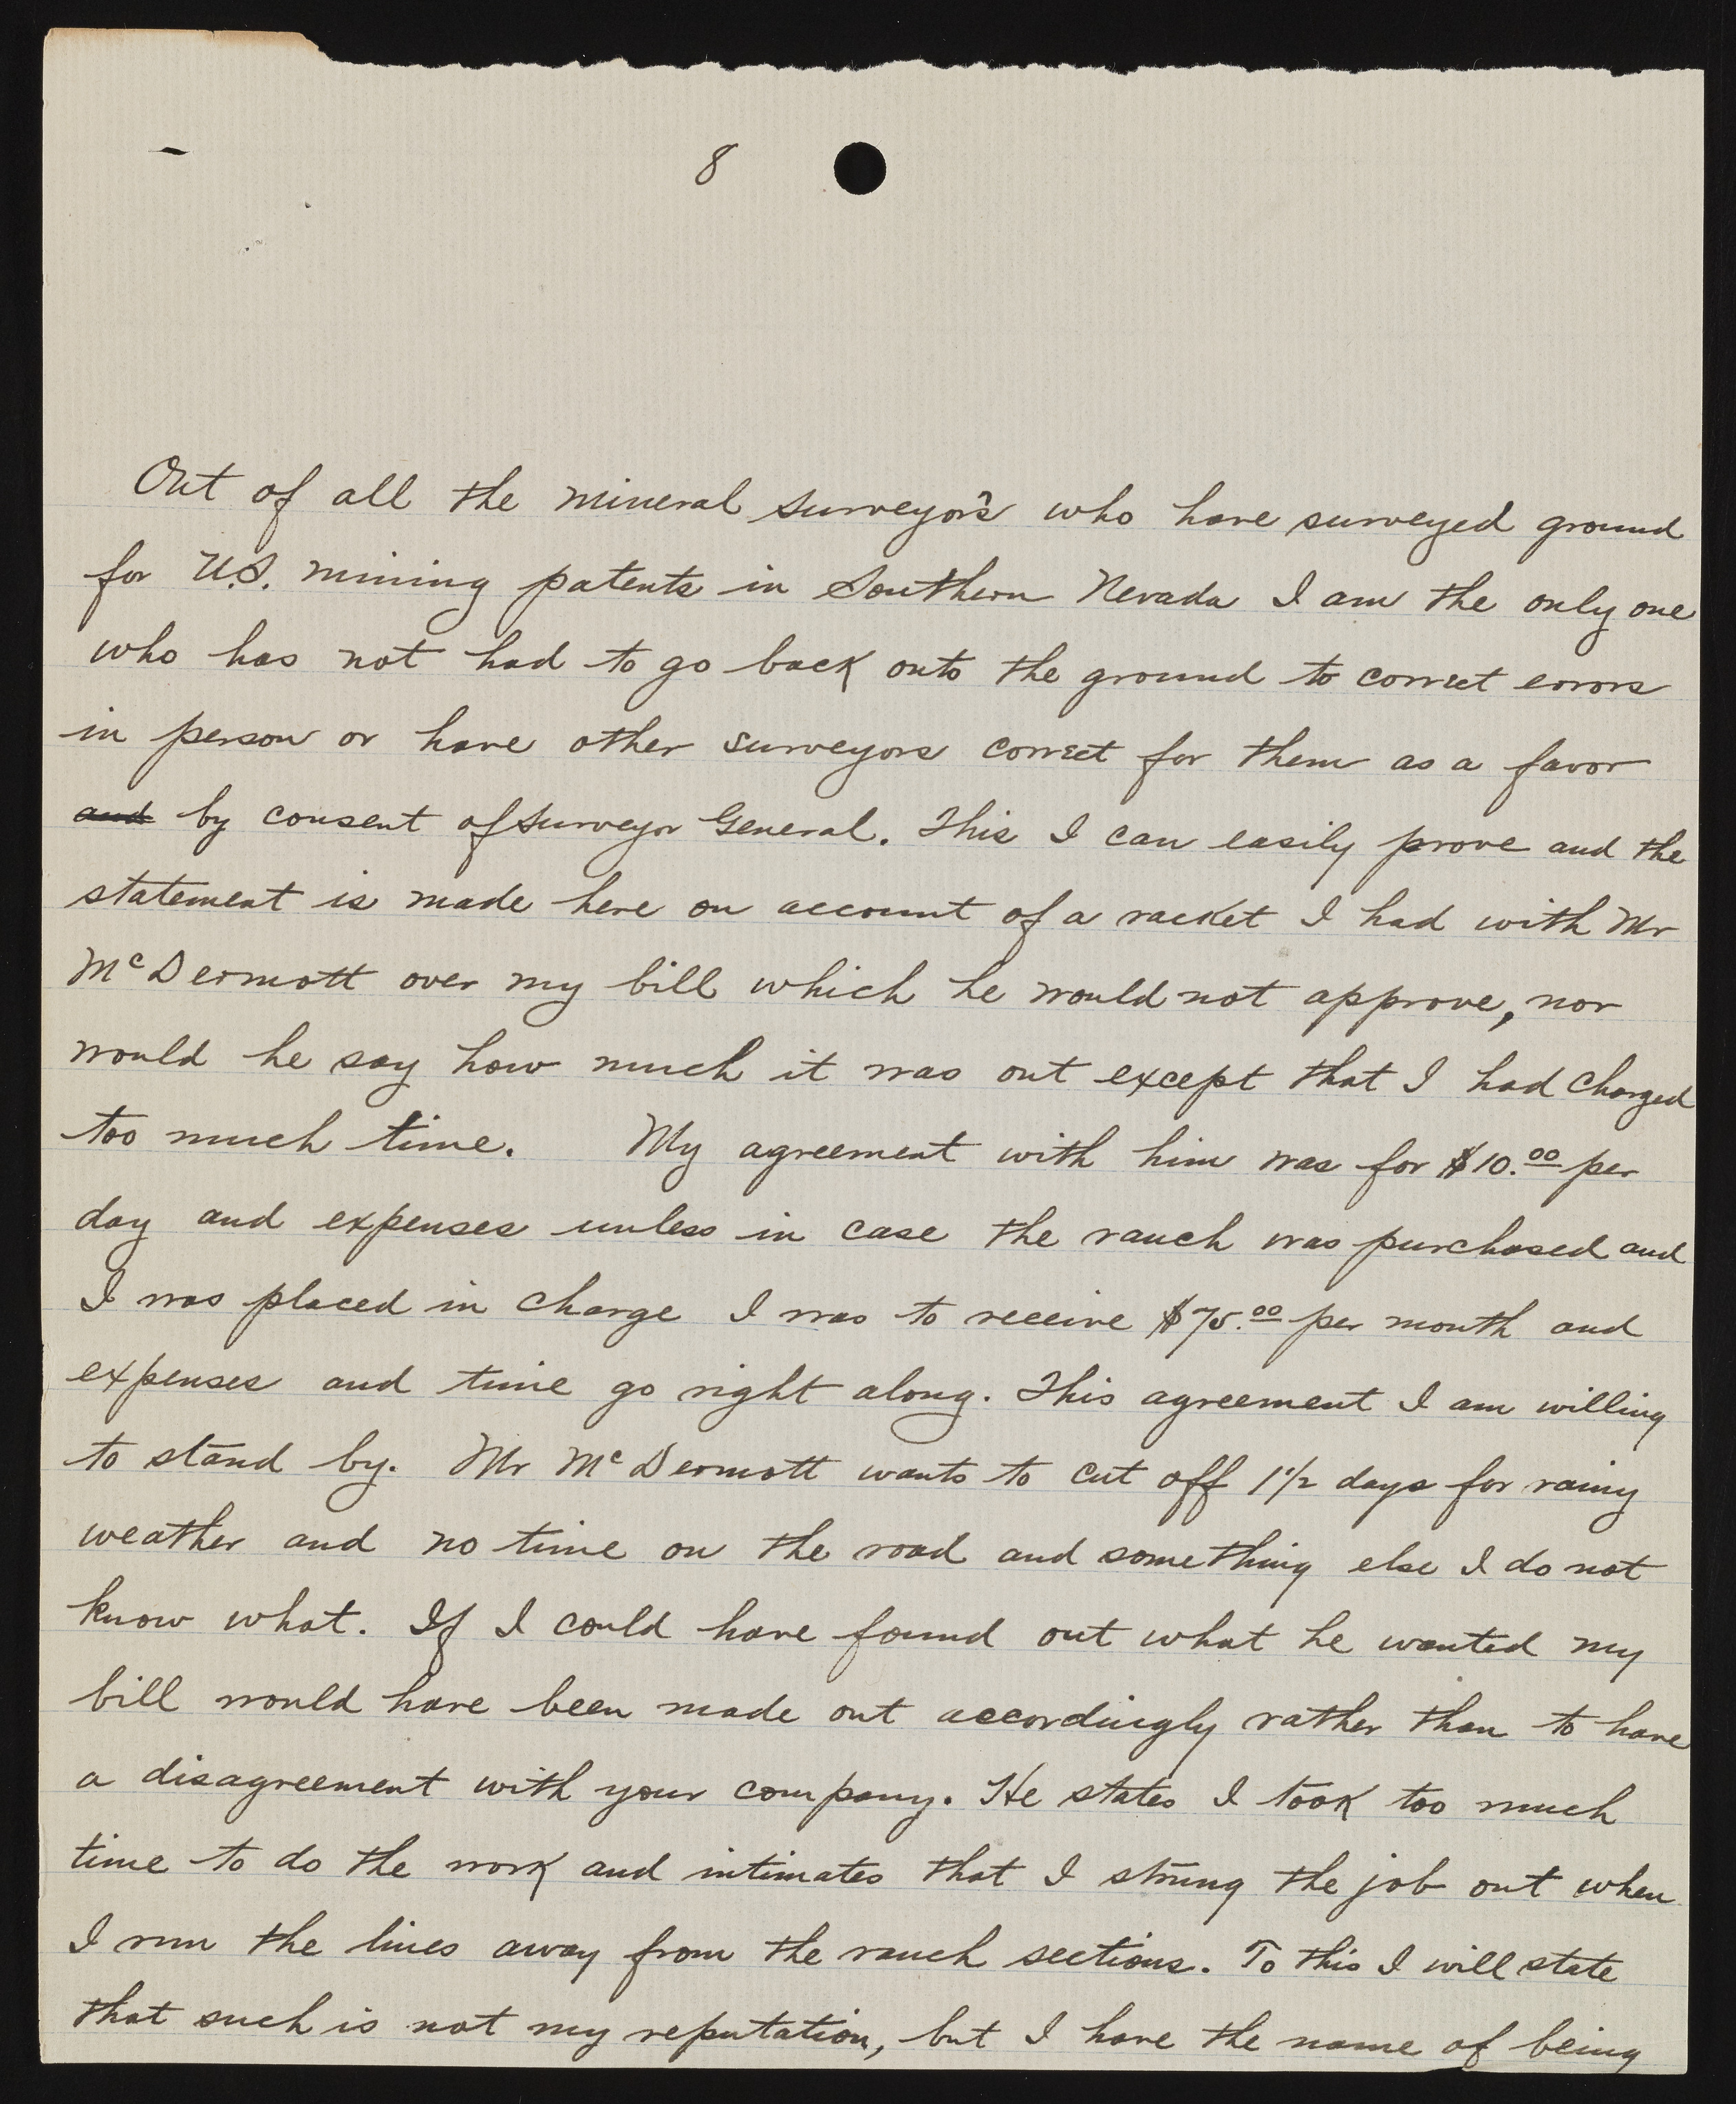 8
Out of all the mineral surveyor's who have surveyed ground
for U.S. mining patents in Southern Nevada I am the only one
who has not had to go back onto the ground to correct errors
in person or have other surveyors correct for them as a favor
and by consent of Surveyor General. This I can easily prove and the
statement is made here on account of a racket I had with Mr
McDermott over my bill which he would not approve, nor
would he say how much it was out except that I had charged
too much time. My agreement with him was for $10.00 per
day and expenses unless in case the ranch was purchased and
I was placed in charge I was to receive $75.00 per month and
expenses and time go right along. This agreement I am willing
to stand by. Mr McDermott wants to cut off 1 1/2 days for rainy
weather and no time on the road and something else I do not
know what. If I could have found out what he wanted my
bill would have been made out accordingly rather than to have
a disagreement with your company. He states I took too much
time to do the work and intimates that I strung the job out when
I run the lines away from the ranch sections. To this I will state
that such is not my reputation, but I have the name of being